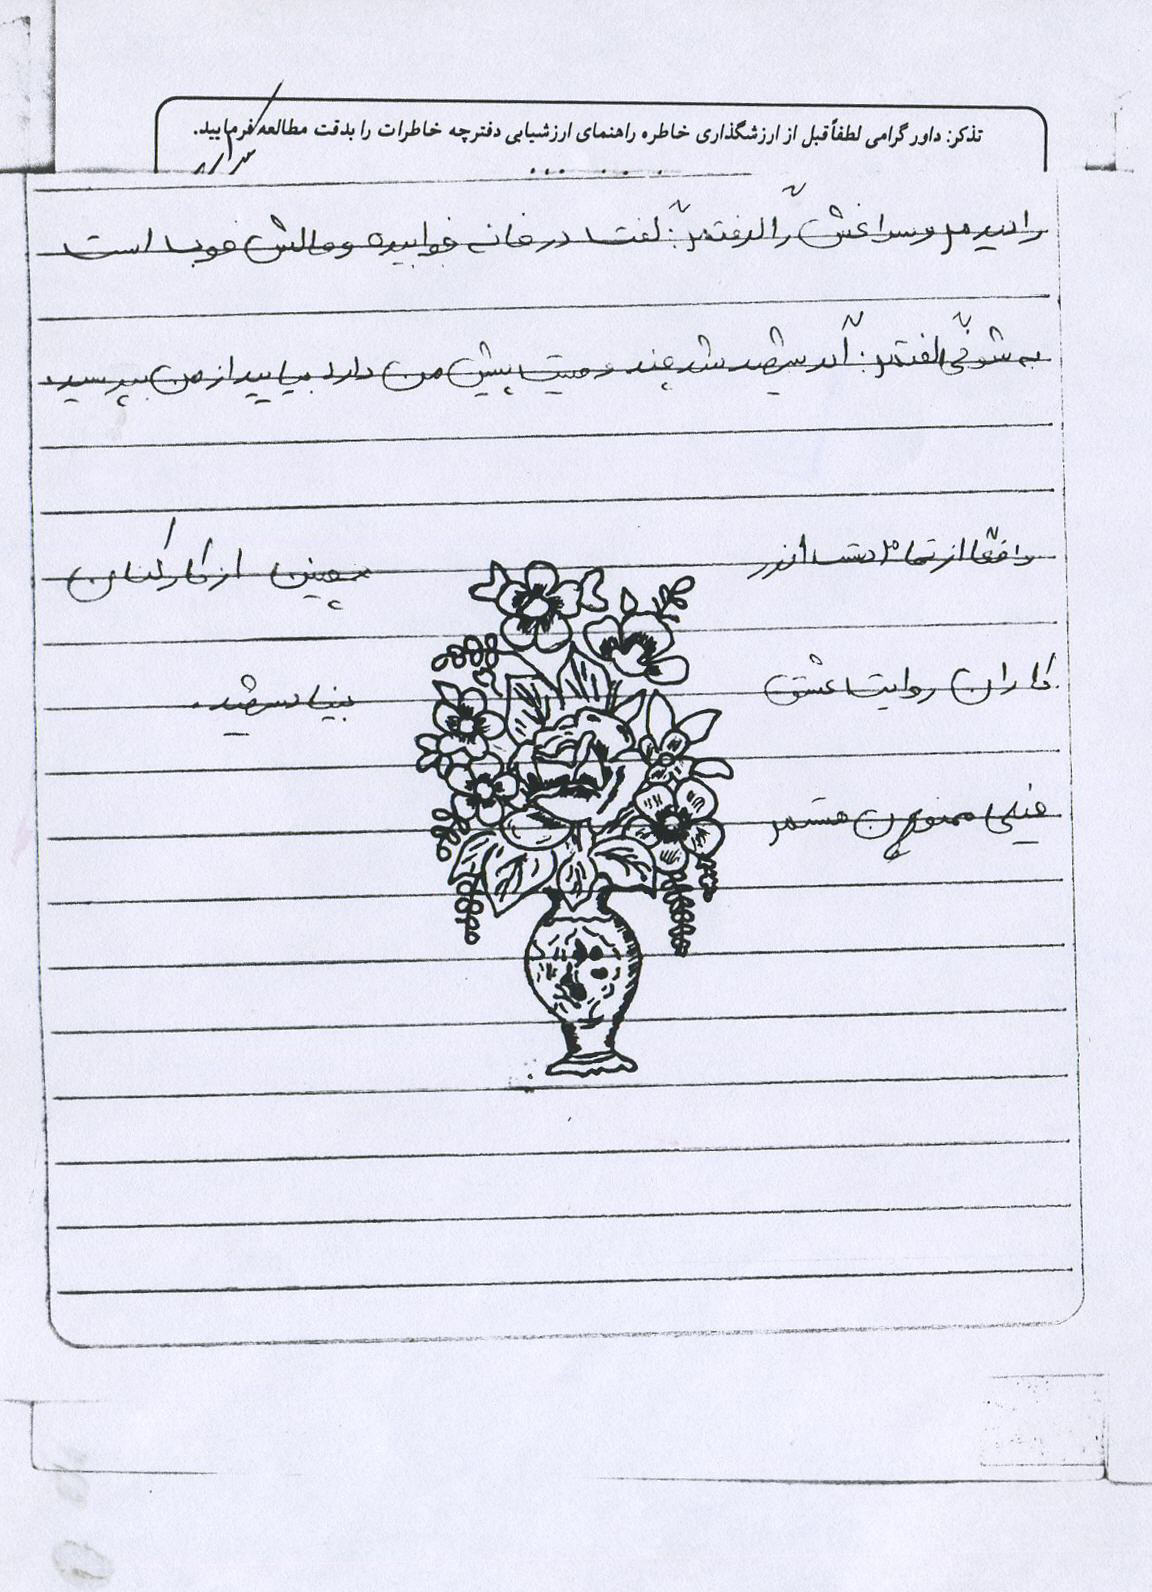 تذکر: داور گرامی لطفاً قبل از ارزشگذاری خاطره راهنمای ارزشیابی دفترچه خاطرات را بدقت مطالعه فرمایید.
را دیدم و سراغش را گرفتم: گفت در خانه خوابیده و حالش خوب است
به شوخی گفتم: اگر شهید شد چند وصیت پیش من دارد بیایید از من بپرسید
واقعا از تمام دست اندر
کاران روایت عشق
همچنین از کارکنان
بنیاد شهید.
خیلی ممنون هستم